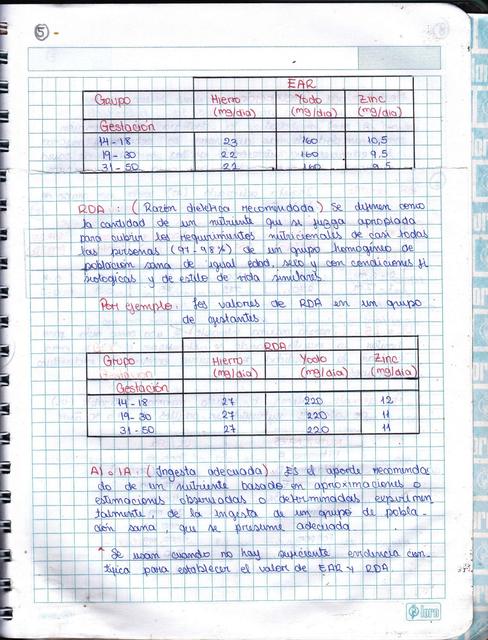 5 -
EAR
Grupo Hierro Yodo Zinc
(mg/dia) (mg/dia) (mg/dia)
Gestación
14-18 23 160 10,5
19-30 22 160 9.5
31-50 22 160 9.5
RDA : ( Razón dietética recomendada) Se definen como
la cantidad de un nutriente que se juzga apropiada
para cubrir los requerimientos nutricionales de casi todas
las personas (97-98%) de un grupo homogéneo de
población sana de igual edad, sexo y con condiciones fi
siologicas y de estilo de vida similares
Por ejemplo: los valores de RDA en un grupo
de gestantes.
RDA
Grupo Hierro Yodo Zinc
(mg/dia) (mg/dia) (mg/dia)
Gestación
14-18 27 220 12
19-30 27 220 11
31-50 27 220 11
AI o IA : ( Ingesta adecuada). Es el aporte recomenda
do de un nutriente basado en aproximaciones o
estimaciones observadas o determinadas experimen
talmente, de la ingesta de un grupo de pobla-
ción sana, que se presume adecuada.
* Se usan cuando no hay suficiente evidencia cien-
tífica para establecer el valor de EAR y RDA.
loro